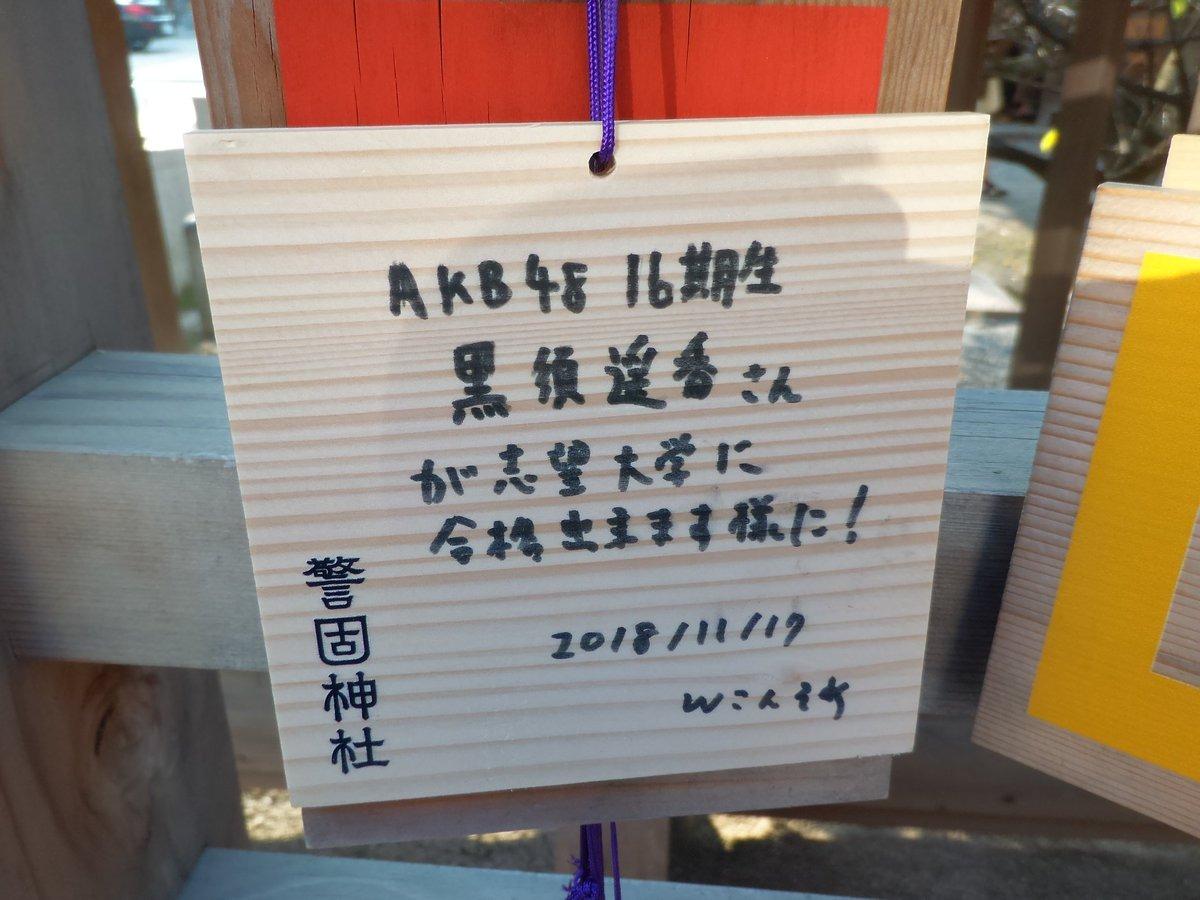 AKB48 16期生
黒須遥香さん
が志望大学に
合格出来ます様に!
2018/11/17
警固神社